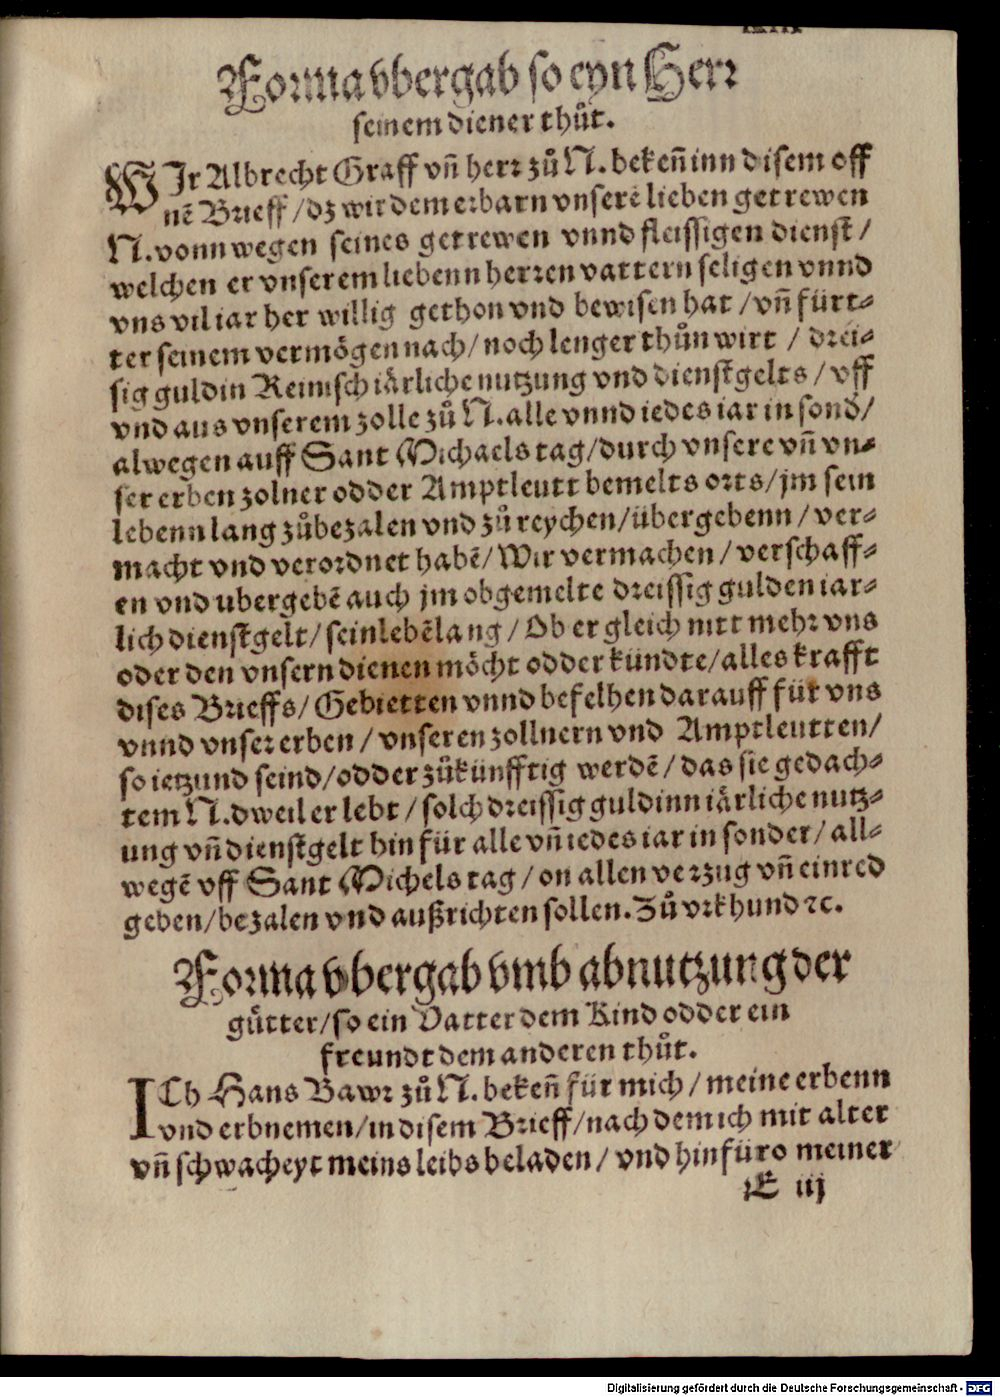 Forma vbergab so eyn Herr
seinem diener thůt.
WIr Albrecht Graff vñ herr zů N. bekeñ inn disem off
nē Brieff / dz wir dem erbarn vnserē lieben getrewen
N. vonn wegen seines getrewen vnnd fleissigen dienst /
welchen er vnserem liebenn herren vattern seligen vnnd
vns vil iar her willig gethon vnd bewisen hat / vñ fürt⸗
ter seinem vermögen nach / noch lenger thůn wirt / drei⸗
sig guldin Reinisch iärliche nutzung vnd dienstgelts / vff
vnd aus vnserem zolle zů N. alle vnnd iedes iar in sond̄ /
alwegen auff Sant Michaels tag / durch vnsere vñ vn⸗
ser erben zolner odder Amptleutt bemelts orts / jm sein
lebenn lang zůbezalen vnd zů reychen / übergebenn / ver⸗
macht vnd verordnet habē / Wir vermachen / verschaff⸗
en vnd ubergebē auch jm obgemelte dreissig gulden iar⸗
lich dienstgelt / sein lebēlang / Ob er gleich nitt mehr vns
oder den vnsern dienen möcht odder kündte / alles krafft
dises Brieffs / Gebietten vnnd befelhen darauff für vns
vnnd vnser erben / vnseren zollnern vnd Amptleutten /
so ietzund seind / odder zůkünfftig werdē / das sie gedach⸗
tem N. dweil er lebt / solch dreissig guldinn iärliche nutz⸗
ung vñ dienstgelt hinfür alle vñ iedes iar in sonder / all⸗
wegē vff Sant Michels tag / on allen verzug vñ einred
geben / bezalen vnd außrichten sollen. Zů vrkhund ꝛc.
Forma vbergab vmb abnutzung der
gütter / so ein Vatter dem Kind odder ein
freundt dem anderen thůt.
ICh Hans Bawr zů N. bekeñ für mich / meine erbenn
vnd erbnemen / in disem Brieff / nach dem ich mit alter
vñ schwacheyt meins leibs beladen / vnd hinfüro meiner
E iij
Digitalisierung gefördert durch die Deutsche Forschungsgemeinschaft - DFG